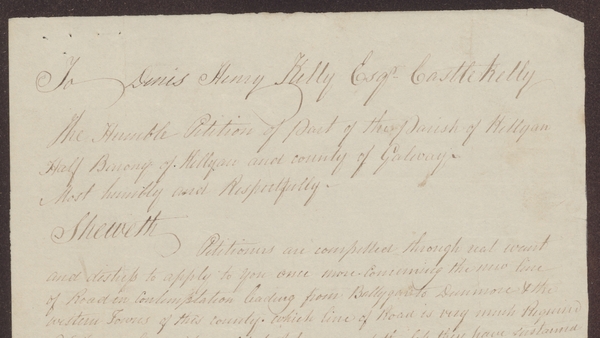 To Denis Henry Kelly Esqr. Castlekelly
The Humble Petition of Part of the Parish of Killyan
Half Barony of Killyan and county of Galway.
Most humbly and Respectfully.
Sheweth
Petitioners are compelled through real want
and distress to apply to you once more concerning the new line
of Road in Contemplation leading from Ballygar to Dunmore & the
western Towns of this county. which line of Road is very much Required
they have sustained